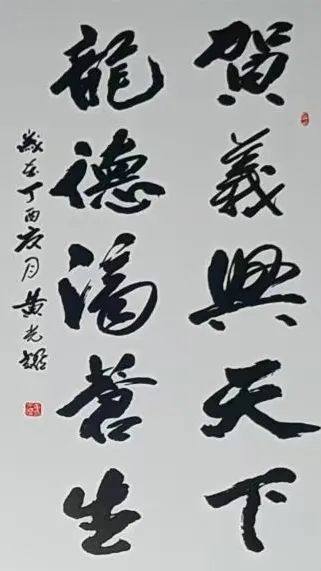 賀義興天下
龍德濟蒼生
歲在丁酉夏月黄光耀